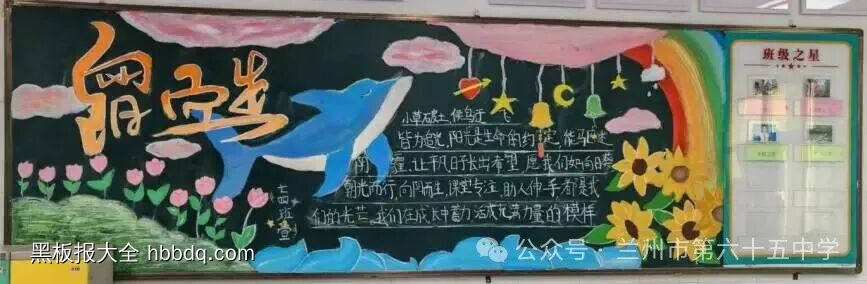 小草破土,候鸟迁飞
皆为追光,阳光是生命的约定,能驱走
阴霾,让平凡日子长出希望,愿我们如向日葵
朝光而行,向阳而生,课堂专注,助人伸手都是我
们的光芒,我们在成长中蓄力,活成充满力量的模样
七四班宣
班级之星
黑板报大全 hbbdq.com
公众号 兰州市第六十五中学